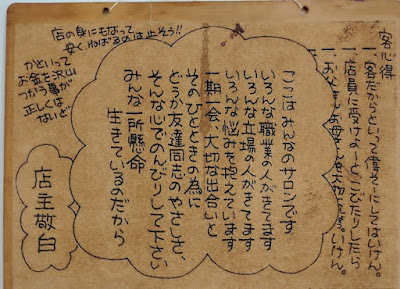 客心得
一.客だからといって偉そーにしてはいけん。
一.店員に受けよーと、こびたりしたら
いけん。
一.お父さんお母さんを大切に
ここはみんなのサロンです
いろんな職業の人がきてます
いろんな立場の人がきてます
いろんな悩みを抱えています
一期一会、大切な出合いと
そのひとときの為に
どうか友達同志のやさしさ、
そんな心でのんびりして下さい
みんな一所懸命
生きているのだから
店の身にもなって
安くねばるのは止そう!!
かといって
お金を沢山
つかう事が
正しくは
ないど。
店主敬白